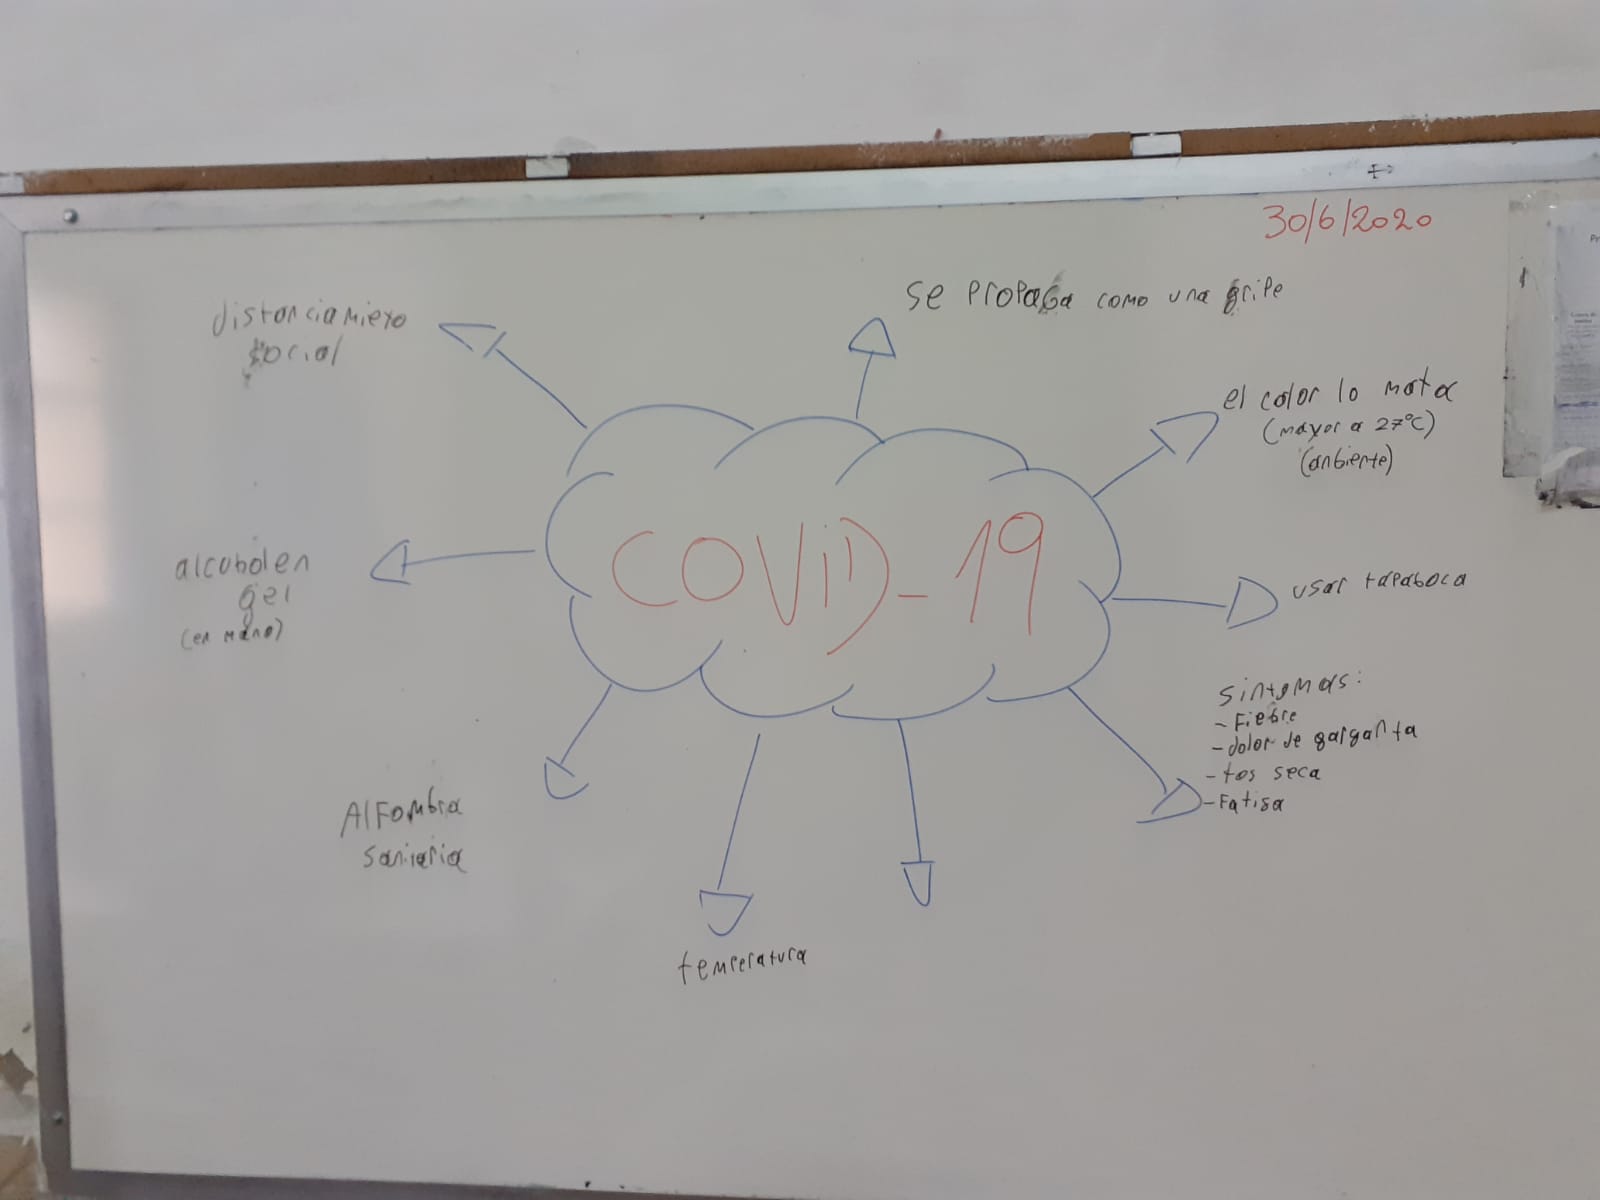 30/6/2020
distanciamieto
social
se propaga como una gripe
el calor lo mata
(mayor a 27°C)
(anbiente)
COVID-19
alcohol en
gel
(en mano)
usar tapaboca
sintomas:
- Fiebre
- dolor de garganta
- tos seca
- Fatiga
Alfombra
sanitaria
temperatura